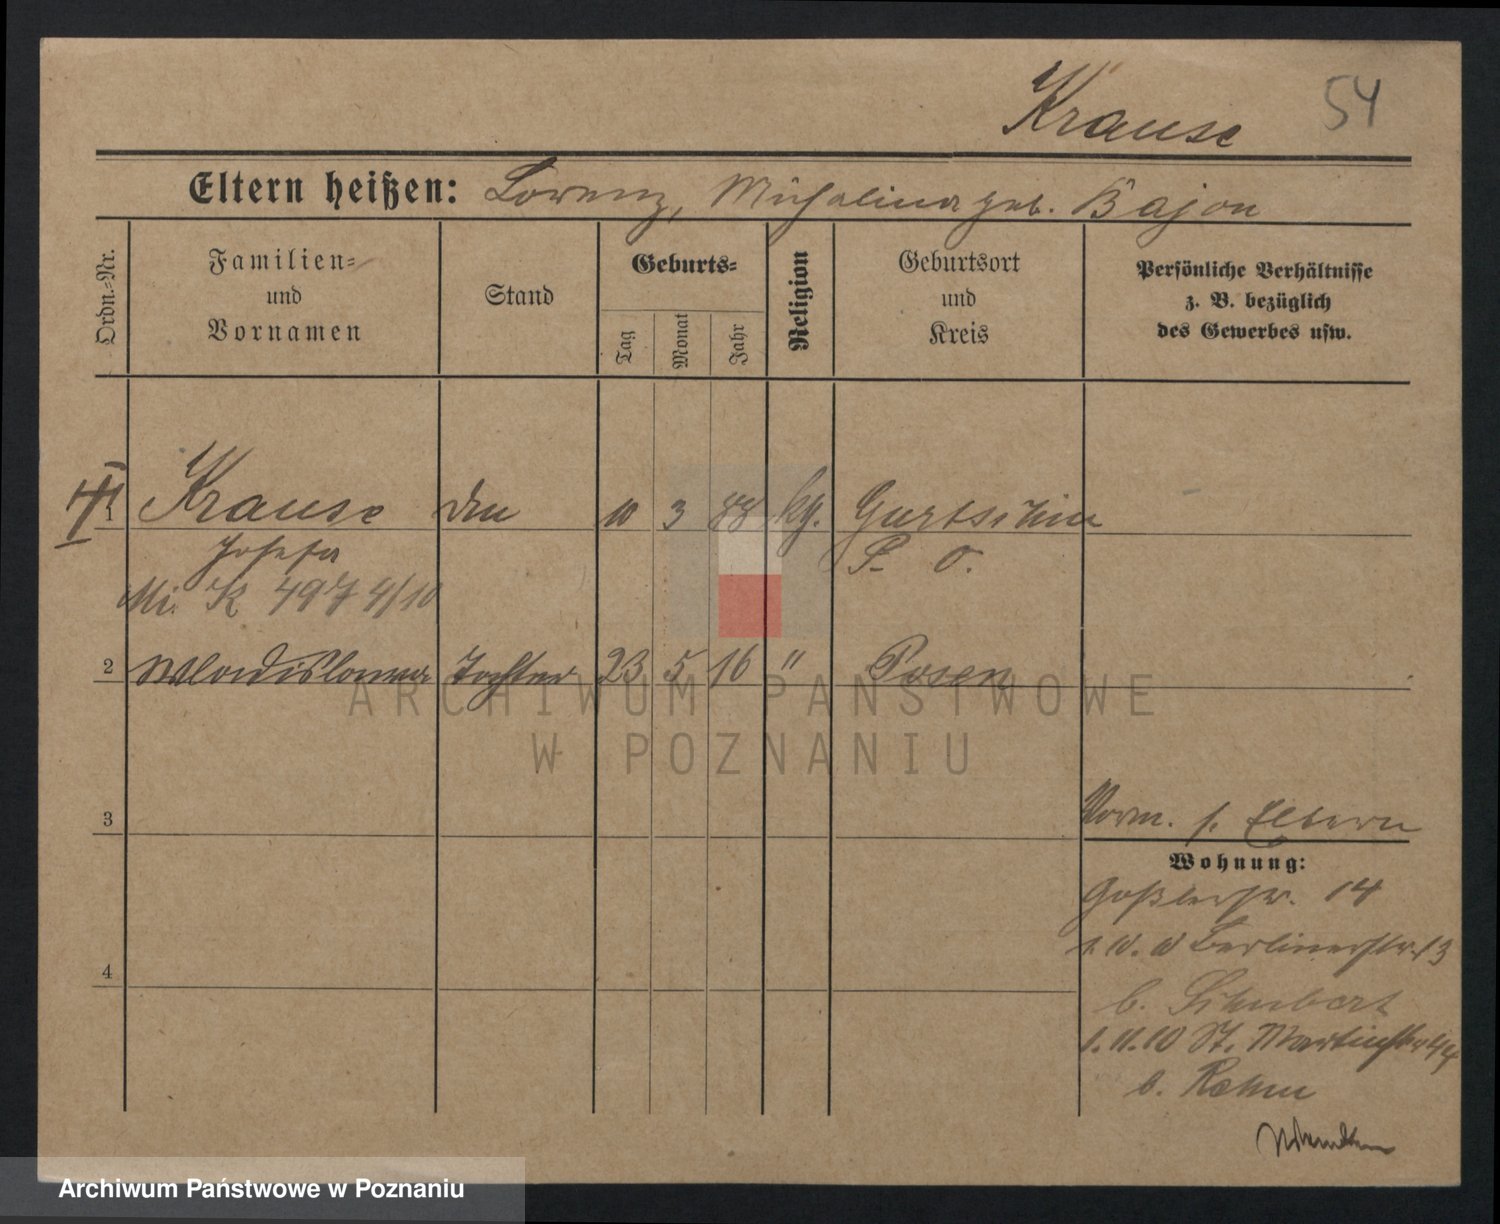 Krause 54
Eltern heißen: Lorenz, Michalina geb. Bajon
Ordn.-Nr.
Familien-
und
Vornamen
Stand
Geburts-
Tag
Monat
Jahr
Religion
Geburtsort
und
Kreis
Persönliche Verhältnisse
z. B. bezüglich
des Gewerbes usw.
1 Krause 10 3 88 kg. Gurtschin
Josefa P. O.
K 4974/10
2 Wlordislawa Tochter 23 5 16 " Posen
ARCHIWUM PAŃSTWOWE
W POZNANIU
3
Vorm. s. Eltern
Wohnung:
Goßlerstr. 14
Berlinerstr. 13
4
b. Schubert
1.11.10 St. Martinstr. 44
b. Rehm
Archiwum Państwowe w Poznaniu